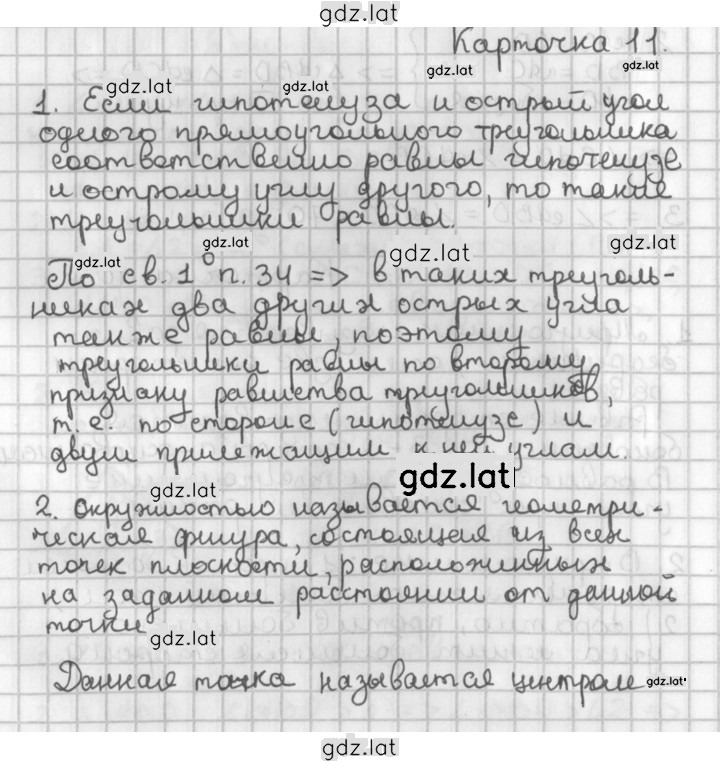 gdz.lat
Карточка 11.
gdz.lat gdz.lat gdz.lat gdz.lat
1. Если гипотенуза и острый угол
одного прямоугольного треугольника
соответственно равны гипотенузе
и острому углу другого, то такие
треугольники равны.
gdz.lat gdz.lat gdz.lat gdz.lat
По св. 1⁰ п. 34 => в таких треуголь-
никах два других острых угла
также равны, поэтому
треугольники равны по второму
признаку равенства треугольников,
т. е. по стороне (гипотенузе) и
двум прилежащим к ней углам.
gdz.lat gdz.lat
2. Окружностью называется геометри-
ческая фигура, состоящая из всех
точек плоскости, расположенных
на заданном расстоянии от данной
точки
gdz.lat
Данная точка называется центром gdz.lat
gdz.lat